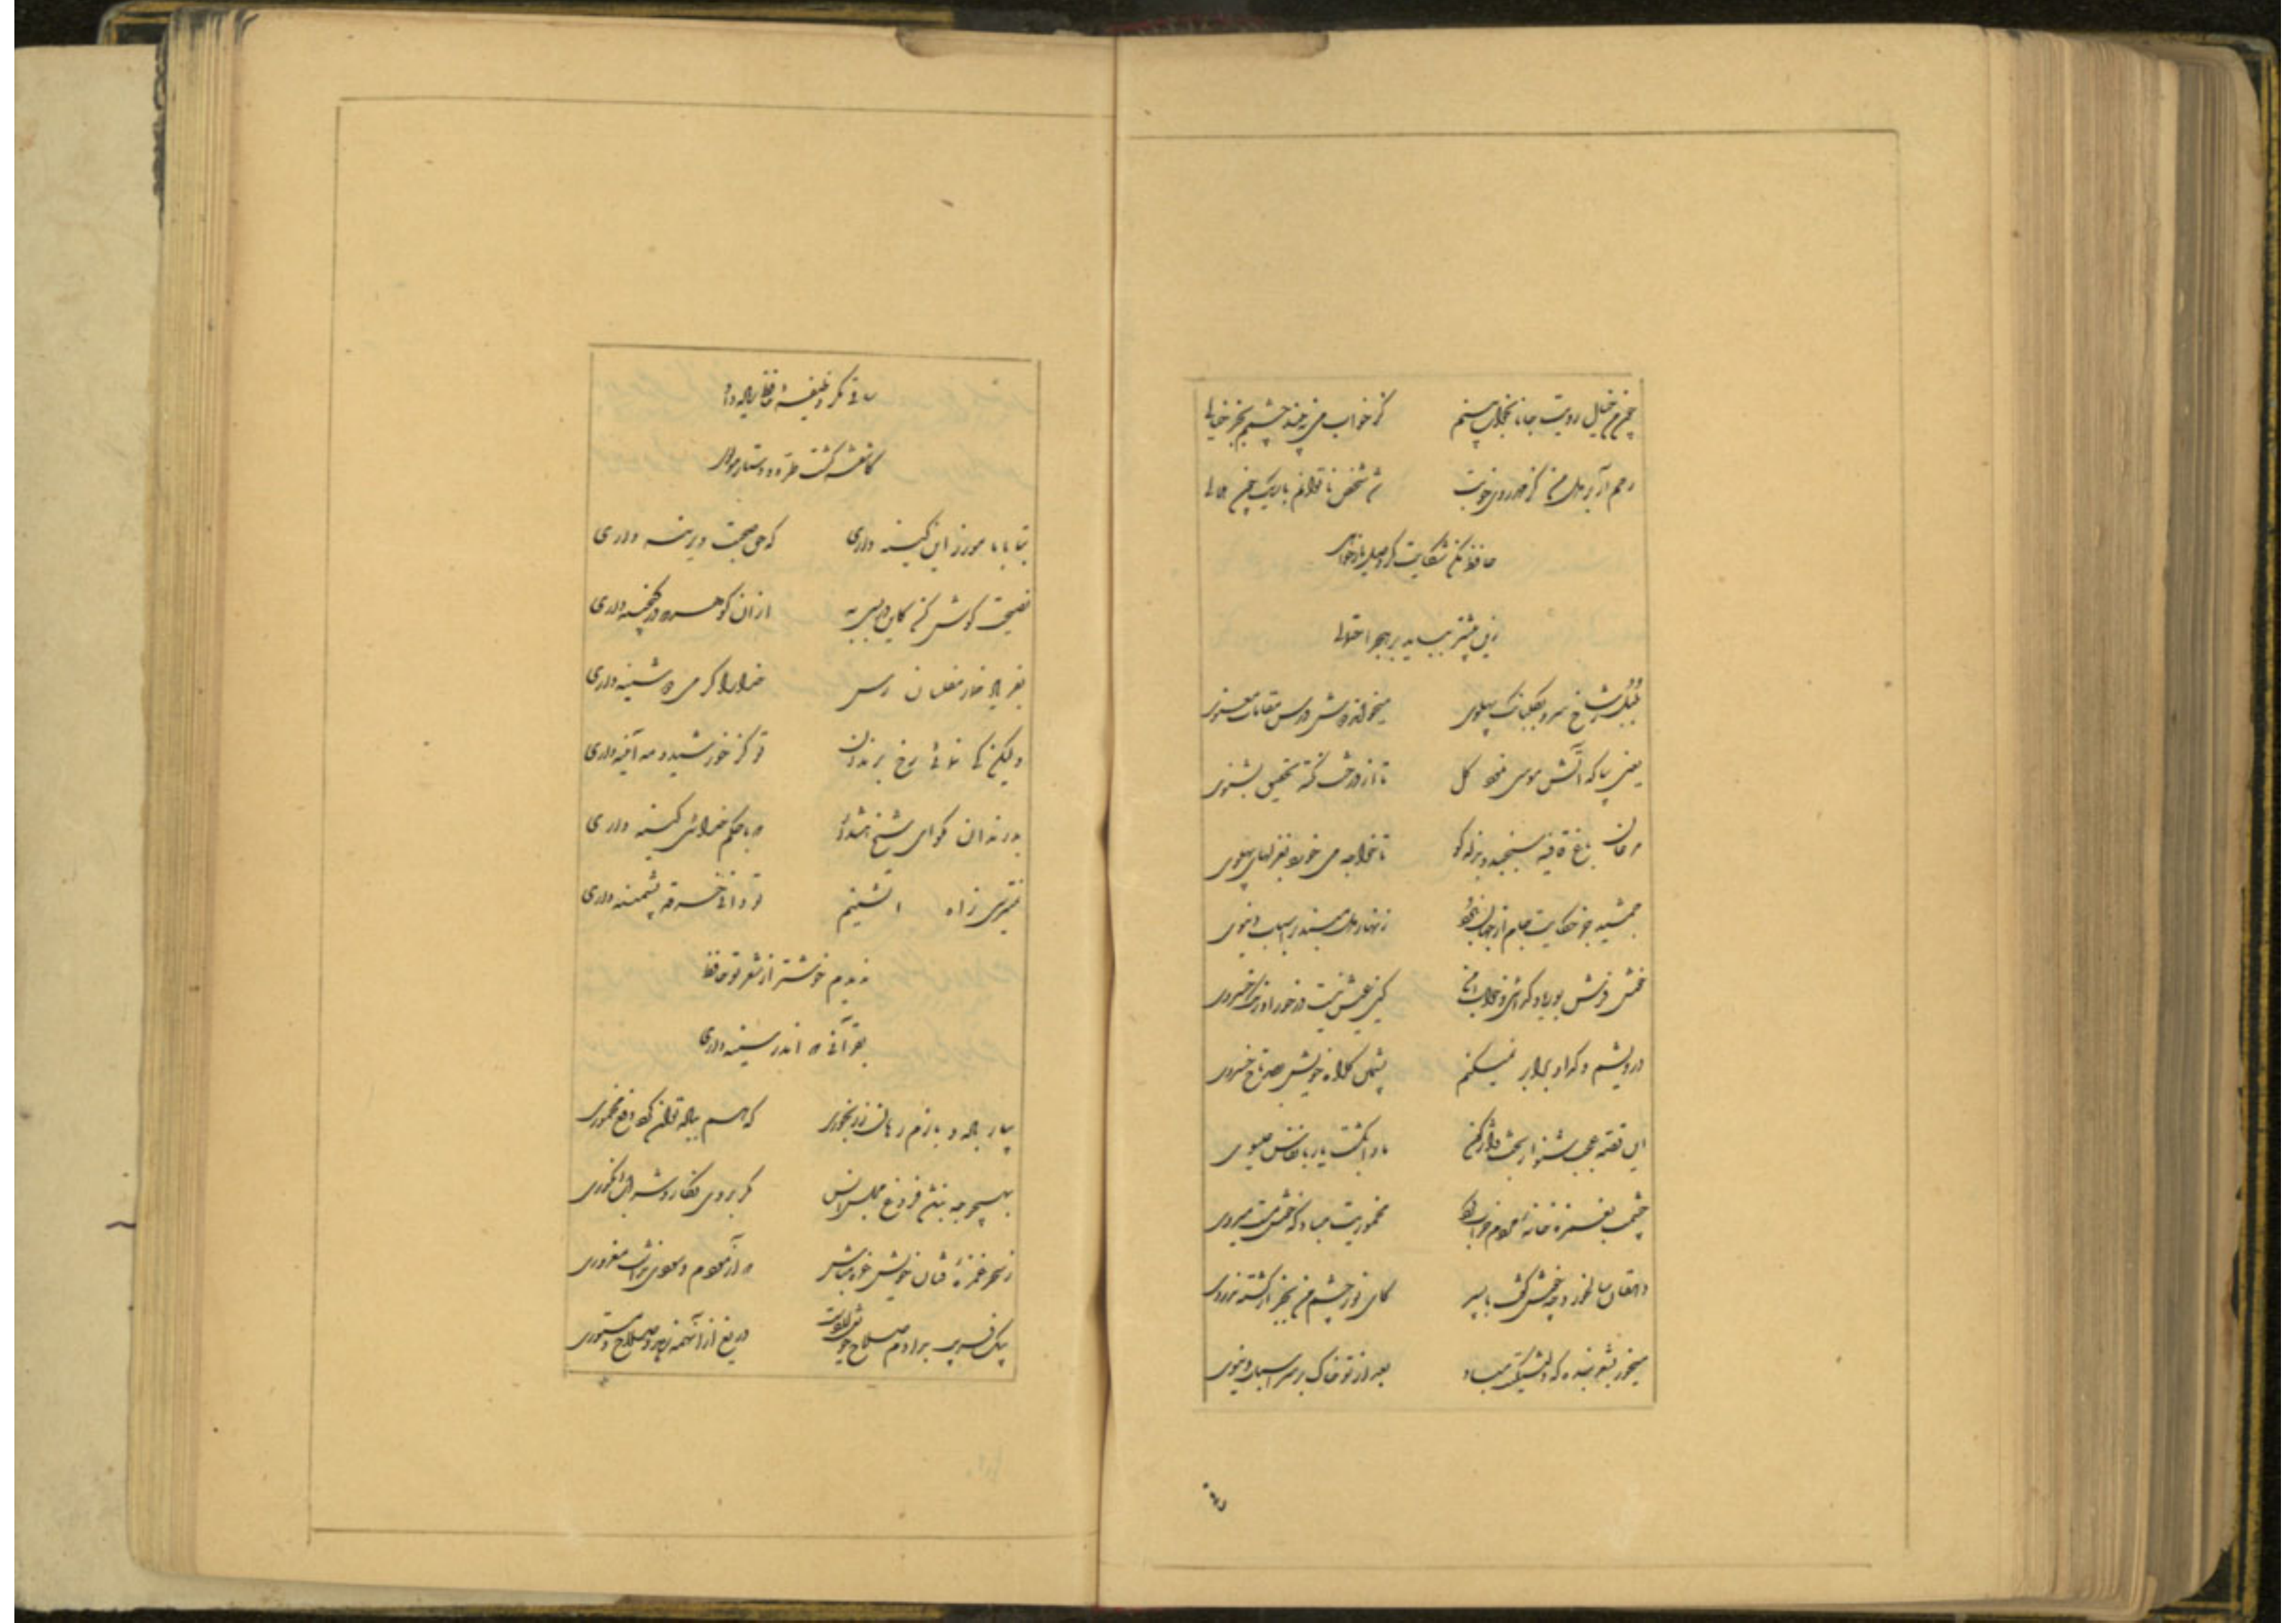 چون من خیال رویت جانا بخواب بینم کز خواب می نبیند چشمم بجز خیالی
رحم آر بر دل من کز مهر روی خوبت شد شخص ناتوانم باریک چون هلالی
حافظ مکن شکایت گر وصل یار خواهی
زین بیشتر بباید بر هجرت احتمالی
بلبل ز شاخ سرو بگلبانگ پهلوی میخواند دوش درس مقامات معنوی
یعنی بیا که آتش موسی نمود گل تا از درخت نکته تحقیق بشنوی
مرغان باغ قافیه سنجند و بذله گو تا خواجه می خورد بغزلهای پهلوی
جمشید جز حکایت جام از جهان نبرد زنهار دل مبند بر اسباب دنیوی
خوش فرش بوریا و گدائی و خواب امن کین عیش نیست در خور اورنگ خسروی
درویشم و گدا و برابر نمیکنم پشمین کلاه خویش بصد تاج خسروی
این قصه عجب شنو از بخت واژگون ما را بکشت یار بانفاس عیسوی
چشمت بغمزه خانه مردم خراب کرد مخموریت مباد که خوش مست میروی
دهقان سالخورده چه خوش گفت با پسر کای نور چشم من بجز از کشته ندروی
می خور بشعر بنده که دلتنگیت مباد بعد از تو خاک بر سر اسباب دنیوی
ساقی مگر وظیفهٔ حافظ زیاده داد
کاشفته گشت طرهٔ دستار مولوی
بیا با ما مورز این کینه داری که حق صحبت دیرینه داری
نصیحت گوش کن کاین در بسی به از آن گوهر که در گنجینه داری
بفریاد خمار مفلسان رس خدا را گر می دوشینه داری
ولیکن کی نمائی رخ برندان تو کز خورشید و مه آئینه داری
بد رندان مگو ای شیخ هشدار که با حکم خدائی کینه داری
نمیترسی ز آه آتشینم تو دانی خرقه پشمینه داری
ندیدم خوشتر از شعر تو حافظ
بقرآنی که اندر سینه داری
بیار باده و بازم رهان ز رنجوری که هم بباده توان کرد دفع مخموری
بهیچ وجه نباشد فروغ مجلس انس مگر بروی نگار و شراب انگوری
ز سحر غمزهٔ فتان خویش غره مباش که آزمودم و سودی نداشت مغروری
بیک فریب بدادم صلاح خویش از دست دریغ از آنهمه زهد و صلاح و مستوری